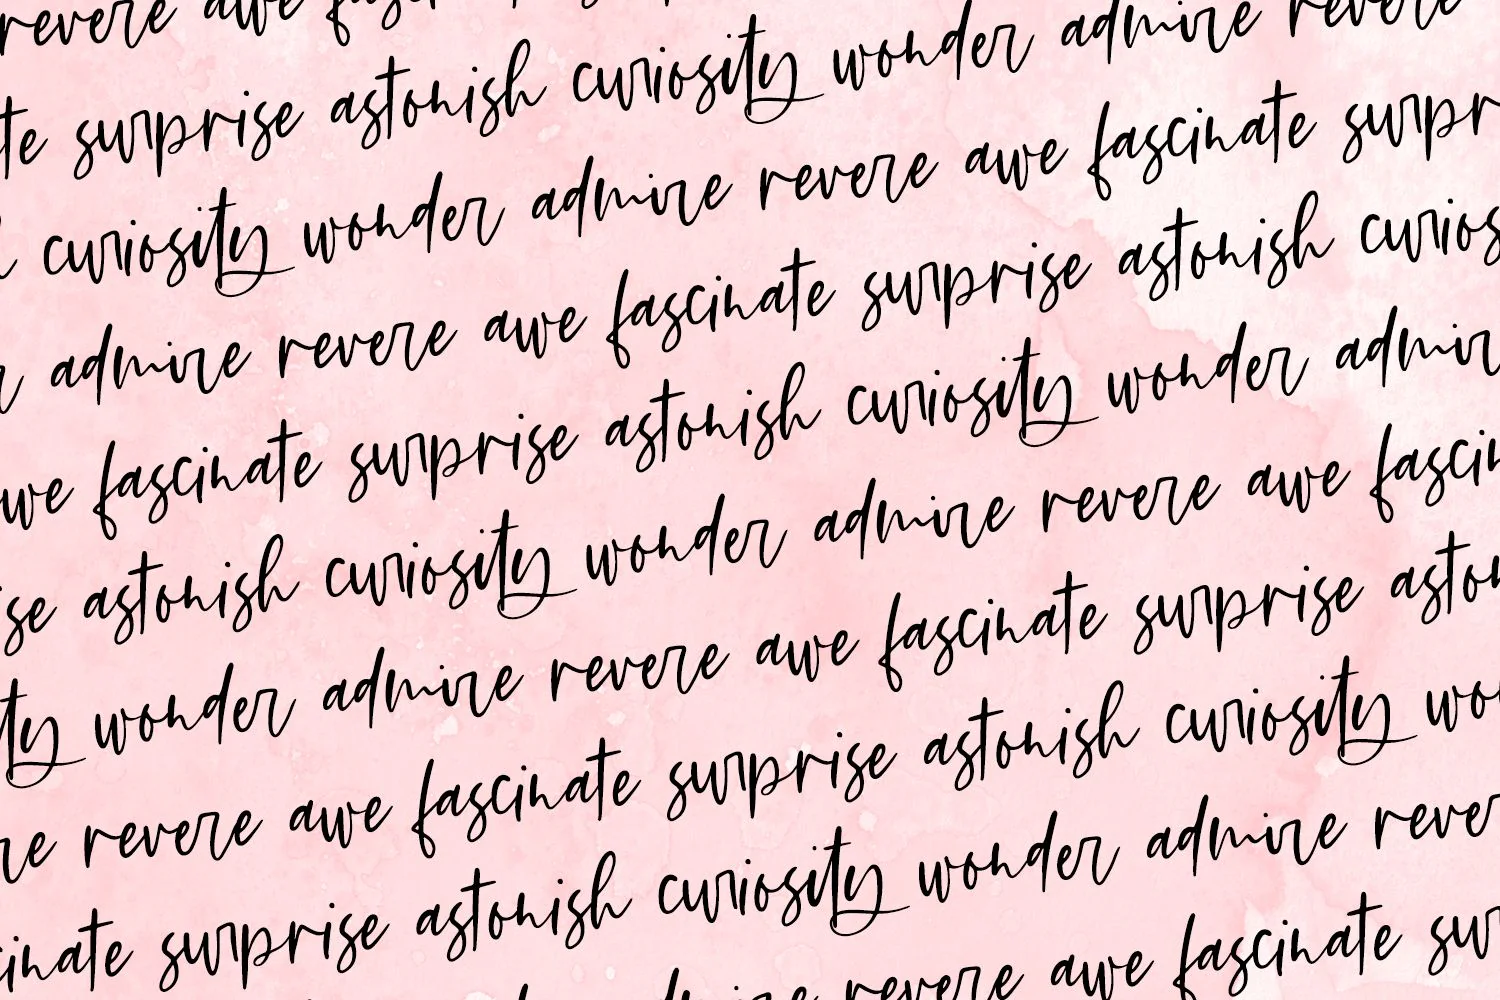 revere awe
te surprise astonish curiosity wonder admire revere
curiosity wonder admire revere awe fascinate surpr
admire revere awe fascinate surprise astonish curios
awe fascinate surprise astonish curiosity wonder admir
ise astonish curiosity wonder admire revere awe fascin
ity wonder admire revere awe fascinate surprise aston
re revere awe fascinate surprise astonish curiosity wo
cinate surprise astonish curiosity wonder admire rever
revere awe fascinate sur